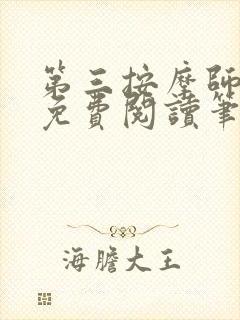 第三按摩師
免費閱讀筆
海膽大王